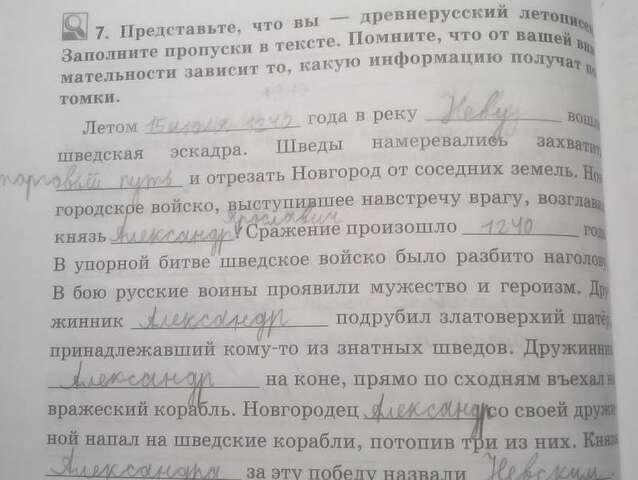 7. Представьте, что вы — древнерусский летописец
Заполните пропуски в тексте. Помните, что от вашей вни
мательности зависит то, какую информацию получат по
томки.
Летом 15 июля 1240 года в реку Неву вошла
шведская эскадра. Шведы намеревались захватить
торговый путь и отрезать Новгород от соседних земель. Нов
городское войско, выступившее навстречу врагу, возглавил
Ярославич
князь Александр. Сражение произошло 1240 года
В упорной битве шведское войско было разбито наголову
В бою русские воины проявили мужество и героизм. Дру
жинник Александр подрубил златоверхий шатёр,
принадлежавший кому-то из знатных шведов. Дружинник
Александр на коне, прямо по сходням въехал на
вражеский корабль. Новгородец Александр со своей дружи
ной напал на шведские корабли, потопив три из них. Князя
Александра за эту победу назвали Невским.